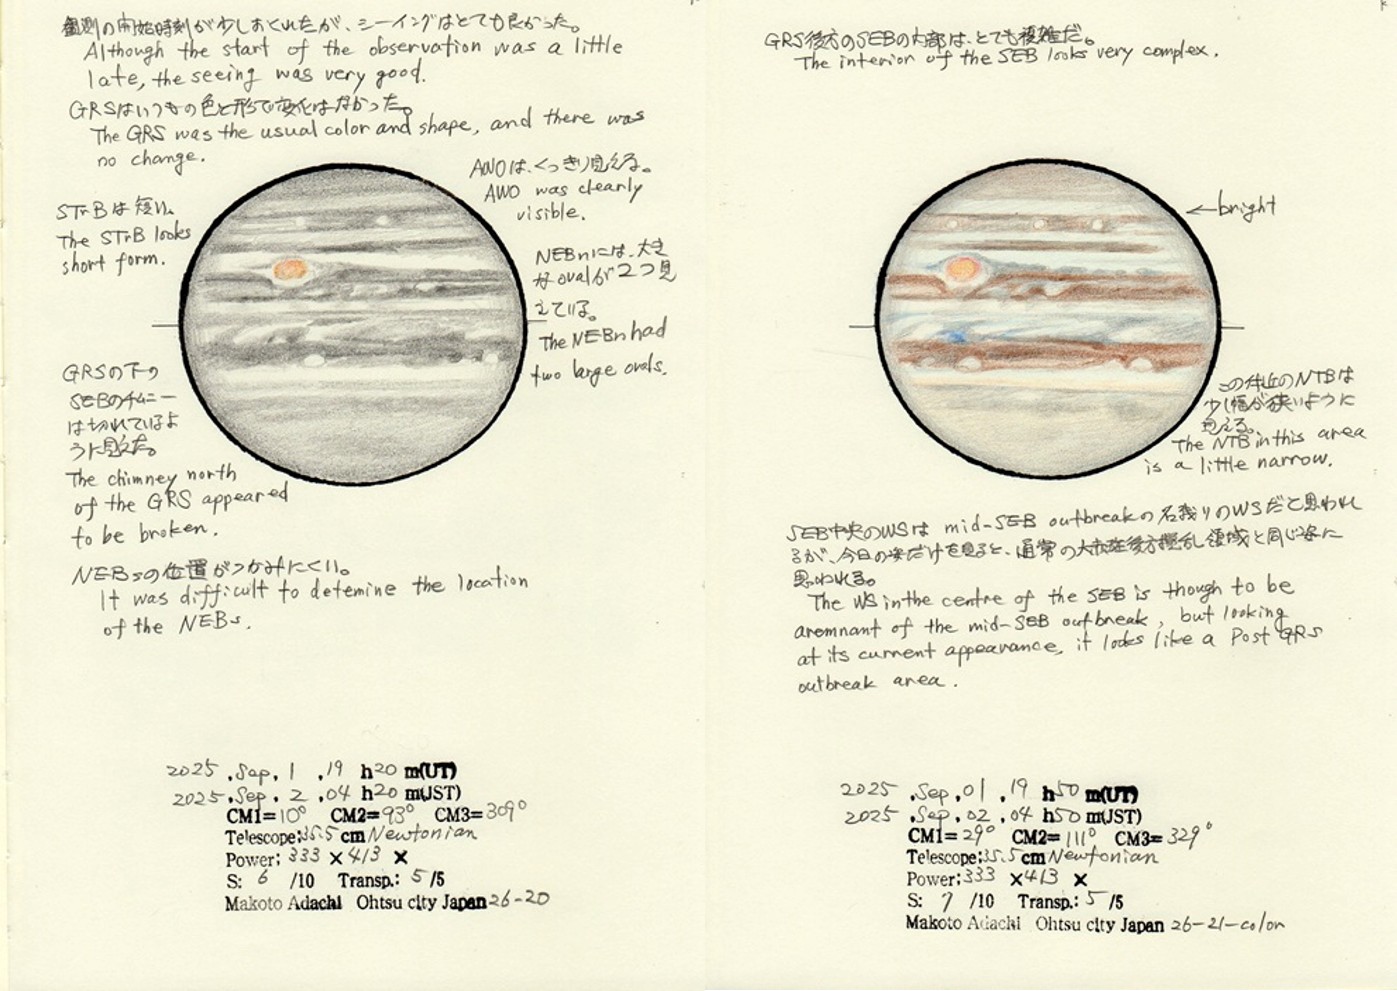 観測の開始時刻が少しおくれたが、シーイングはとても良かった。
Although the start of the observation was a little
late, the seeing was very good.
GRSはいつもの色と形で変化はなかった。
The GRS was the usual color and shape, and there was
no change.
AWOは、くっきり見える。
AWO was clearly
visible.
STrBは短い。
The STrB looks
short form.
NEBnには、大き
なovalが2つ見
えている。
The NEBn had
two large ovals.
GRSの下の
SEBのチムニー
は切れているよ
うに見えた。
The chimney north
of the GRS appeared
to be broken.
NEBsの位置がつかみにくい。
It was difficult to detemine the location
of the NEBs.
2025 .Sep. 1 .19 h20 m(UT)
2025 .Sep. 2 .04 h20 m(JST)
CM1=10° CM2=93° CM3=309°
Telescope:35.5 cm Newtonian
Power: 333 ×413 ×
S: 6 /10 Transp.: 5 /5
Makoto Adachi Ohtsu city Japan 26-20
GRS後方のSEBの内部は、とても複雑だ。
The interior of the SEB looks very complex.
←bright
この付近のNTBは
少し幅が狭いように
見える。
The NTB in this area
is a little narrow.
SEB中央のWSは mid-SEB outbreakの名残りのWSだと思われ
るが、今日の姿だけを見ると、通常の大赤斑後方攪乱領域と同じ姿に
思われる。
The WS in the centre of the SEB is though to be
aremnant of the mid-SEB outbreak, but looking
at its current appearance, it looks like a Post GRS
outbreak area.
2025 .Sep .01 .19 h50 m(UT)
2025 .Sep .02 .04 h50 m(JST)
CM1=29° CM2=111° CM3=329°
Telescope:35.5 cm Newtonian
Power:333 ×413 ×
S: 7 /10 Transp.: 5 /5
Makoto Adachi Ohtsu city Japan 26-21-color